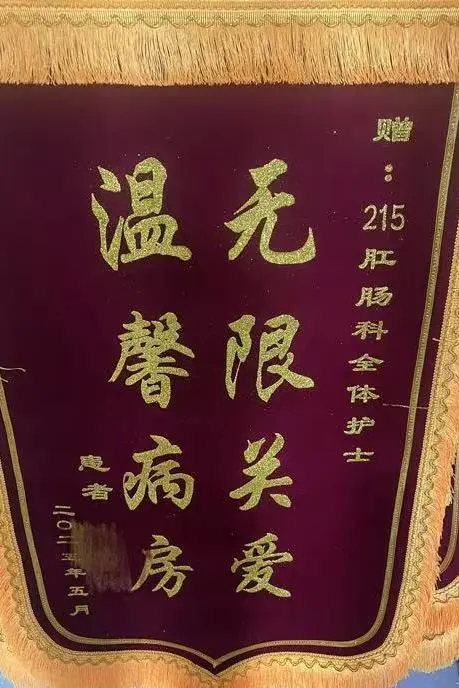 赠：
215肛肠科全体护士
无限关爱
温馨病房
患者
二〇二五年五月